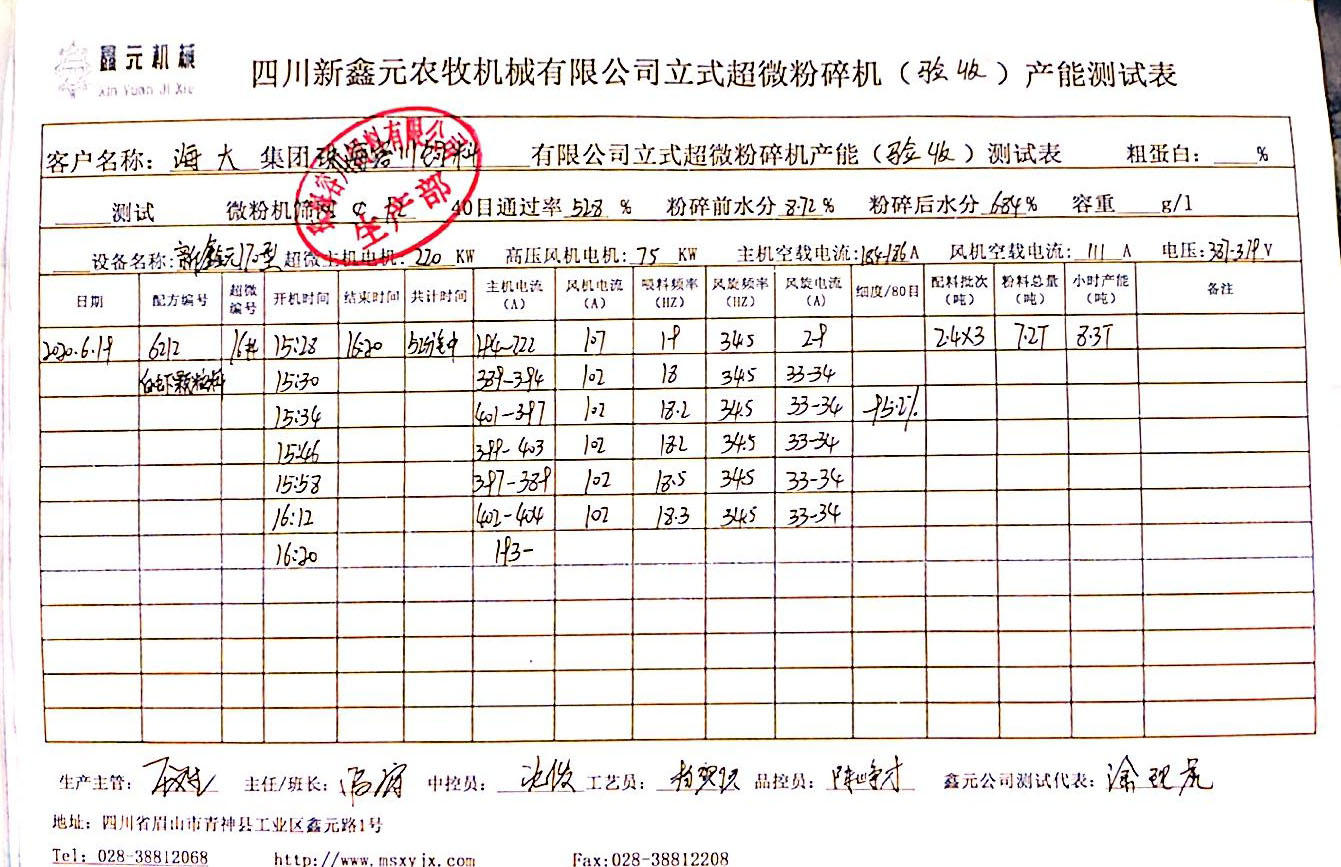 鑫元机械
Xin Yuan Ji Xie
四川新鑫元农牧机械有限公司立式超微粉碎机(验收)产能测试表
客户名称: 海大 集团珠海容川饲料 有限公司立式超微粉碎机产能(验收)测试表 粗蛋白: %
测试 微粉机筛 40目通过率 52.8 % 粉碎前水分 8.72 % 粉碎后水分 6.84 % 容重 g/l
生产部
设备名称: 新鑫元170型 超微主机电机: 220 KW 高压风机电机: 75 KW 主机空载电流: 184-186 A 风机空载电流: 111 A 电压: 387-379 V
日期 配方编号 超微编号 开机时间 结束时间 共计时间 主机电流(A) 风机电流(A) 吸料频率(HZ) 风旋频率(HZ) 风旋电流(A) 细度/80目 配料批次(吨) 粉料总量(吨) 小时产能(吨) 备注
2020.6.19 6212 16# 15:28 16:20 52分钟 194-222 107 19 34.5 29 2.4X3 7.2T 8.3T
白虾颗粒料 15:30 389-394 102 18 34.5 33-34
15:34 401-397 102 18.2 34.5 33-34 95.2%
15:46 399-403 102 18.2 34.5 33-34
15:58 397-389 102 18.5 34.5 33-34
16:12 402-404 102 18.3 34.5 33-34
16:20 193-
生产主管: 主任/班长: 中控员: 工艺员: 品控员: 鑫元公司测试代表:
地址: 四川省眉山市青神县工业区鑫元路1号
Tel: 028-38812068 http://www.msxyjx.com Fax:028-38812208